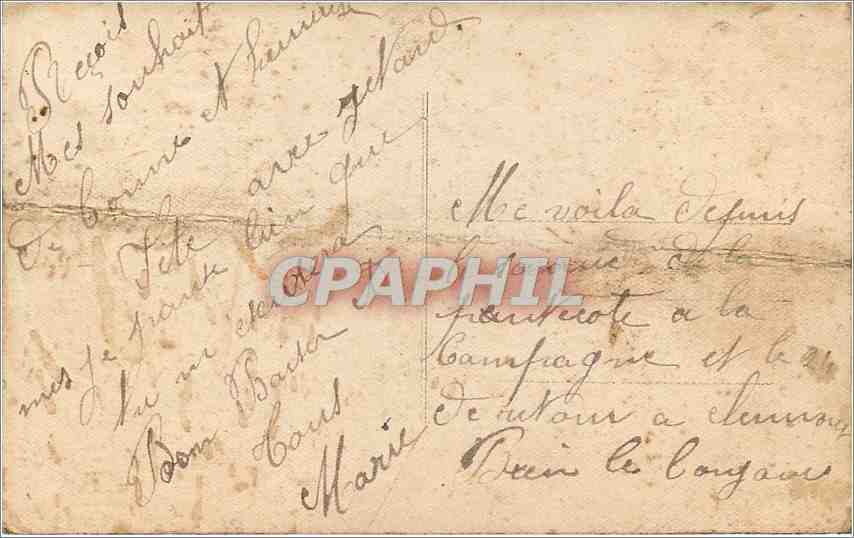 Reçois
Mes souhait
de bonne et heureuse
Fête avec retard.
mes je pense bien que
tu m'excusera
Bon Baiser à
tous
Marie
Me voila depuis
la de la
pentecote a la
Campagne et le 24
de retour a
Bien le bonjour
CPAPHIL